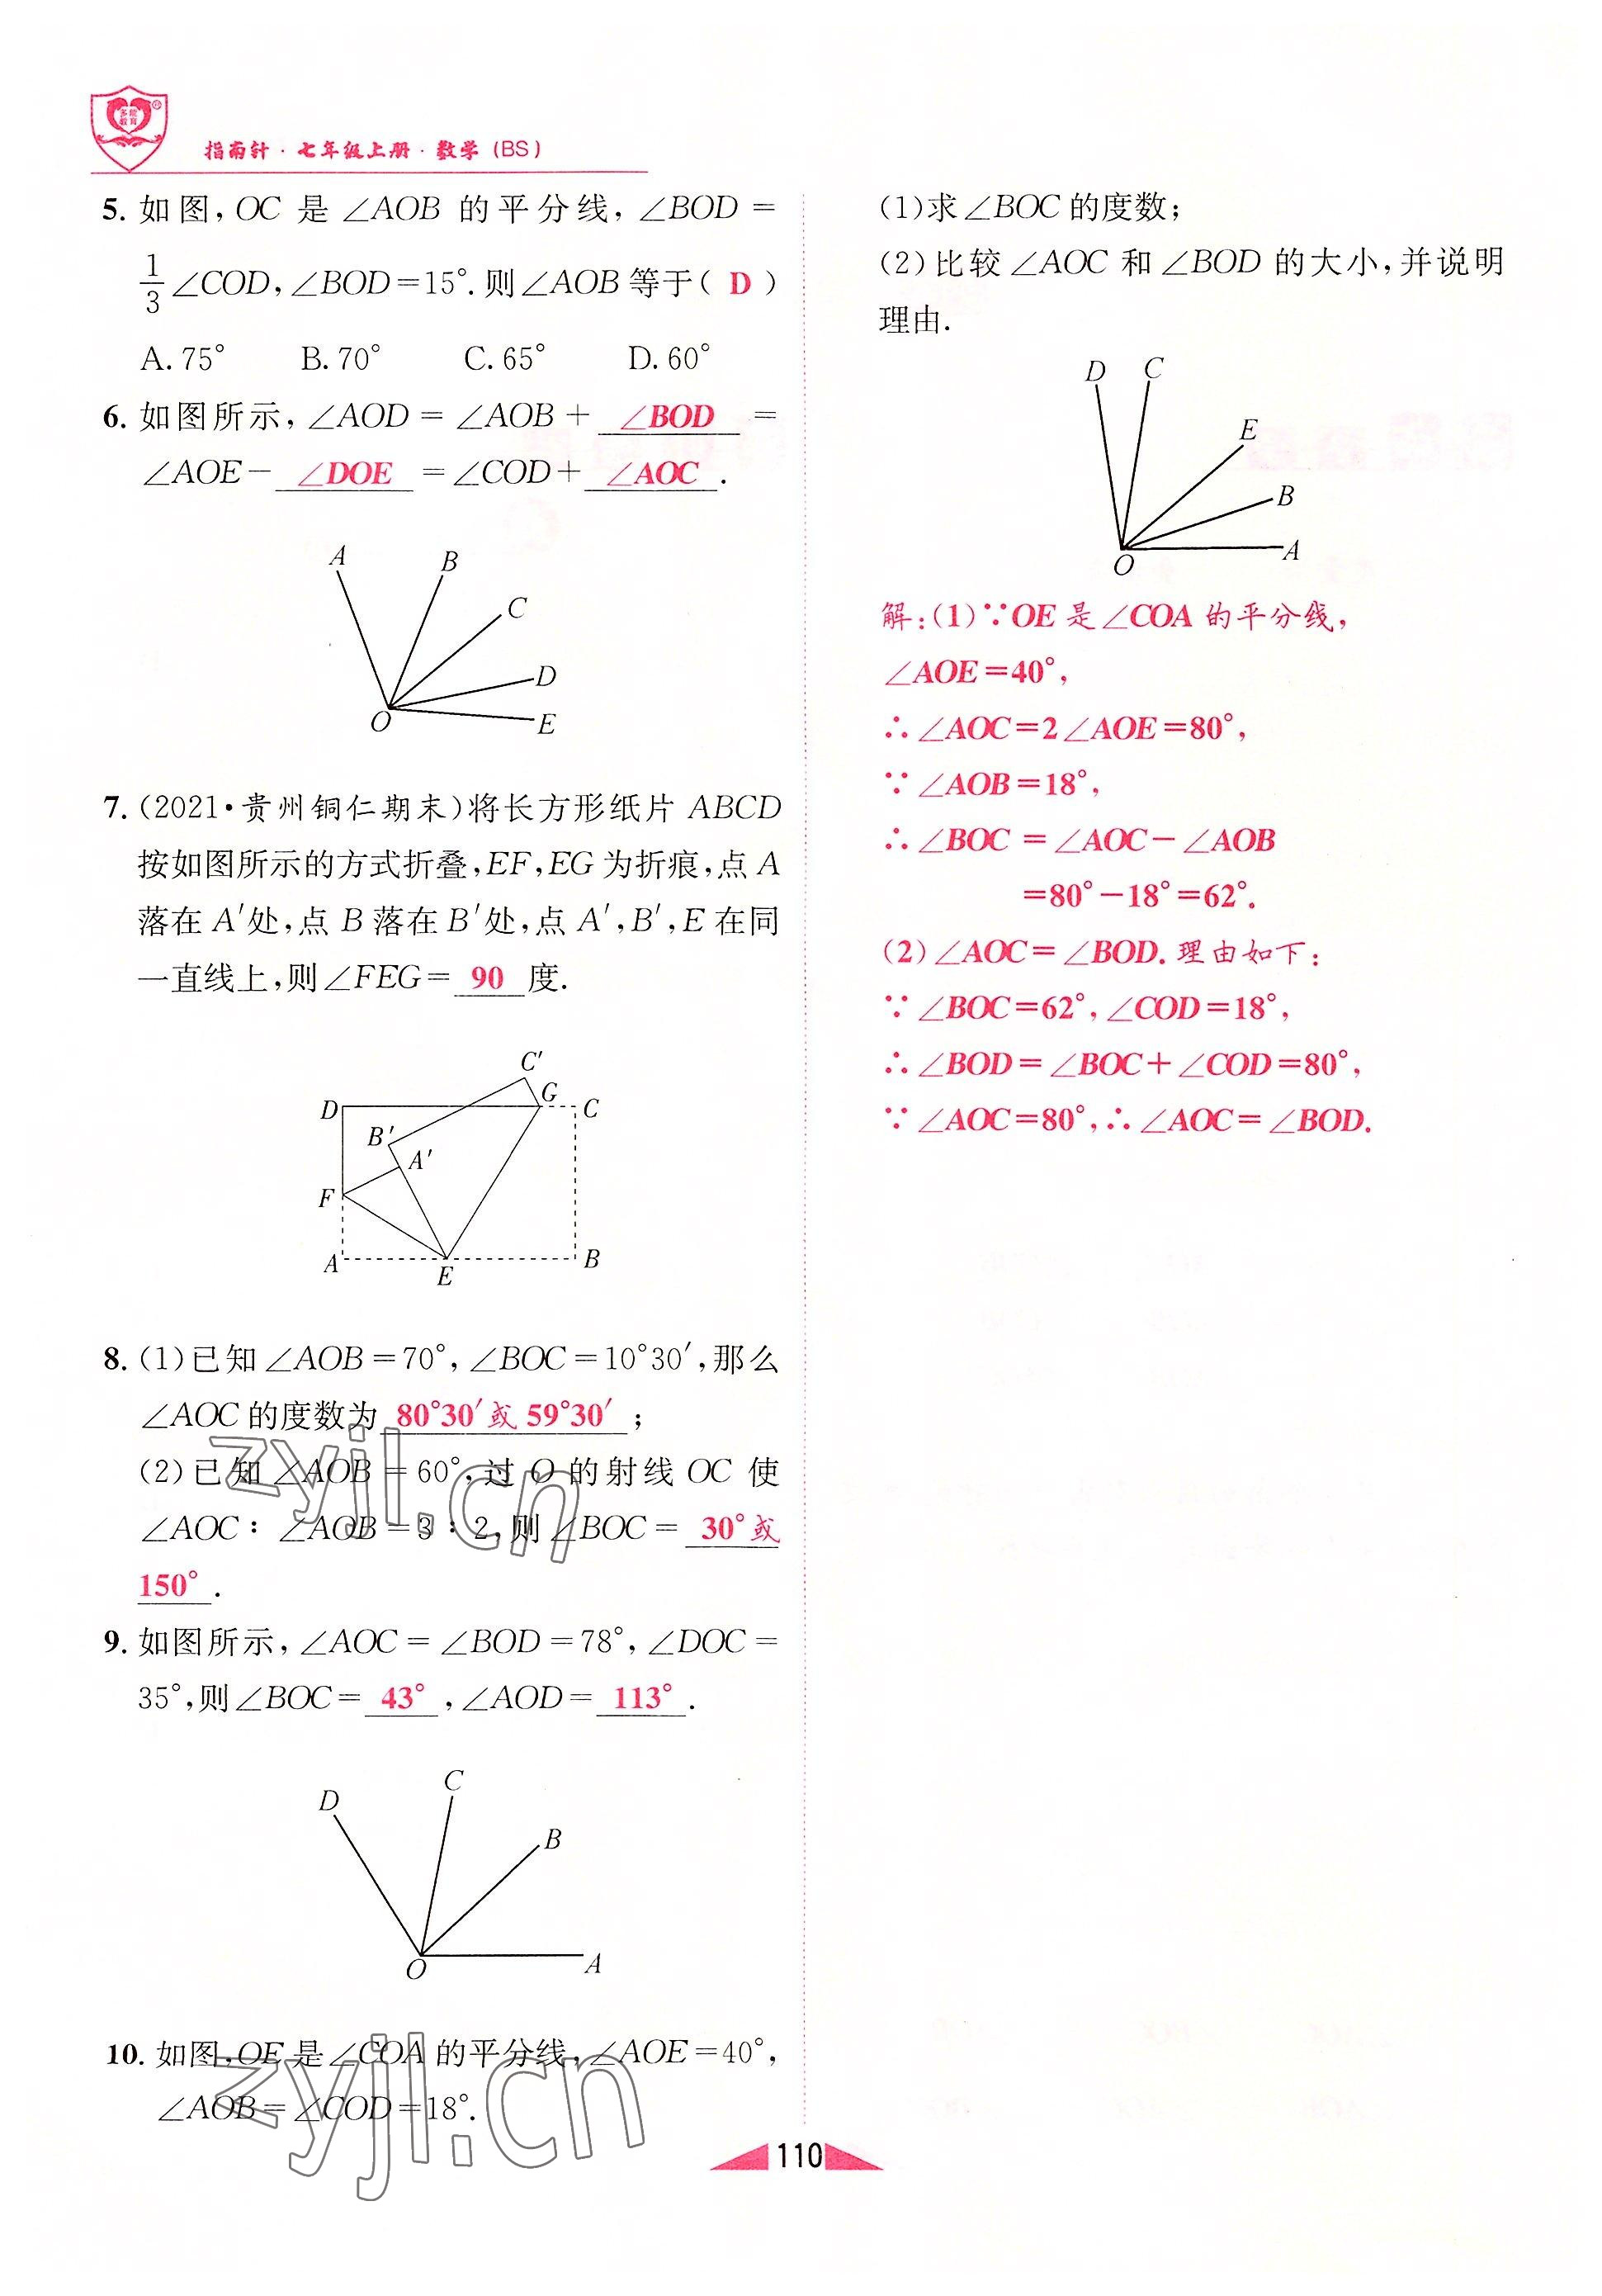 多能
教育
指南针·七年级上册·数学(BS)
5. 如图,OC 是 ∠AOB 的平分线,∠BOD =
1/3∠COD,∠BOD=15°.则∠AOB 等于( D )
A.75° B.70° C.65° D.60°
6. 如图所示,∠AOD = ∠AOB + ∠BOD =
∠AOE- ∠DOE =∠COD+ ∠AOC .
A
B
C
D
O
E
7. (2021·贵州铜仁期末)将长方形纸片 ABCD
按如图所示的方式折叠,EF,EG 为折痕,点 A
落在 A′处,点 B 落在 B′处,点 A′,B′,E 在同
一直线上,则∠FEG= 90 度.
C′
D G C
B′
A′
F
A E B
8. (1)已知∠AOB=70°,∠BOC=10°30′,那么
∠AOC 的度数为 80°30′或 59°30′ ;
(2)已知∠AOB=60°,过 O 的射线 OC 使
∠AOC∶∠AOB=3∶2,则∠BOC= 30°或
150° .
9. 如图所示,∠AOC=∠BOD=78°,∠DOC=
35°,则∠BOC= 43° ,∠AOD= 113° .
C
D
B
O A
10. 如图,OE 是∠COA 的平分线,∠AOE=40°,
∠AOB=∠COD=18°.
(1)求∠BOC 的度数;
(2)比较∠AOC 和∠BOD 的大小,并说明
理由.
D C
E
B
O A
解:(1)∵OE 是∠COA 的平分线,
∠AOE=40°,
∴∠AOC=2∠AOE=80°,
∵∠AOB=18°,
∴∠BOC =∠AOC-∠AOB
=80°-18°=62°.
(2)∠AOC=∠BOD.理由如下:
∵∠BOC=62°,∠COD=18°,
∴∠BOD=∠BOC+∠COD=80°,
∵∠AOC=80°,∴∠AOC=∠BOD.
zyjl.cn
zyjl.cn
110